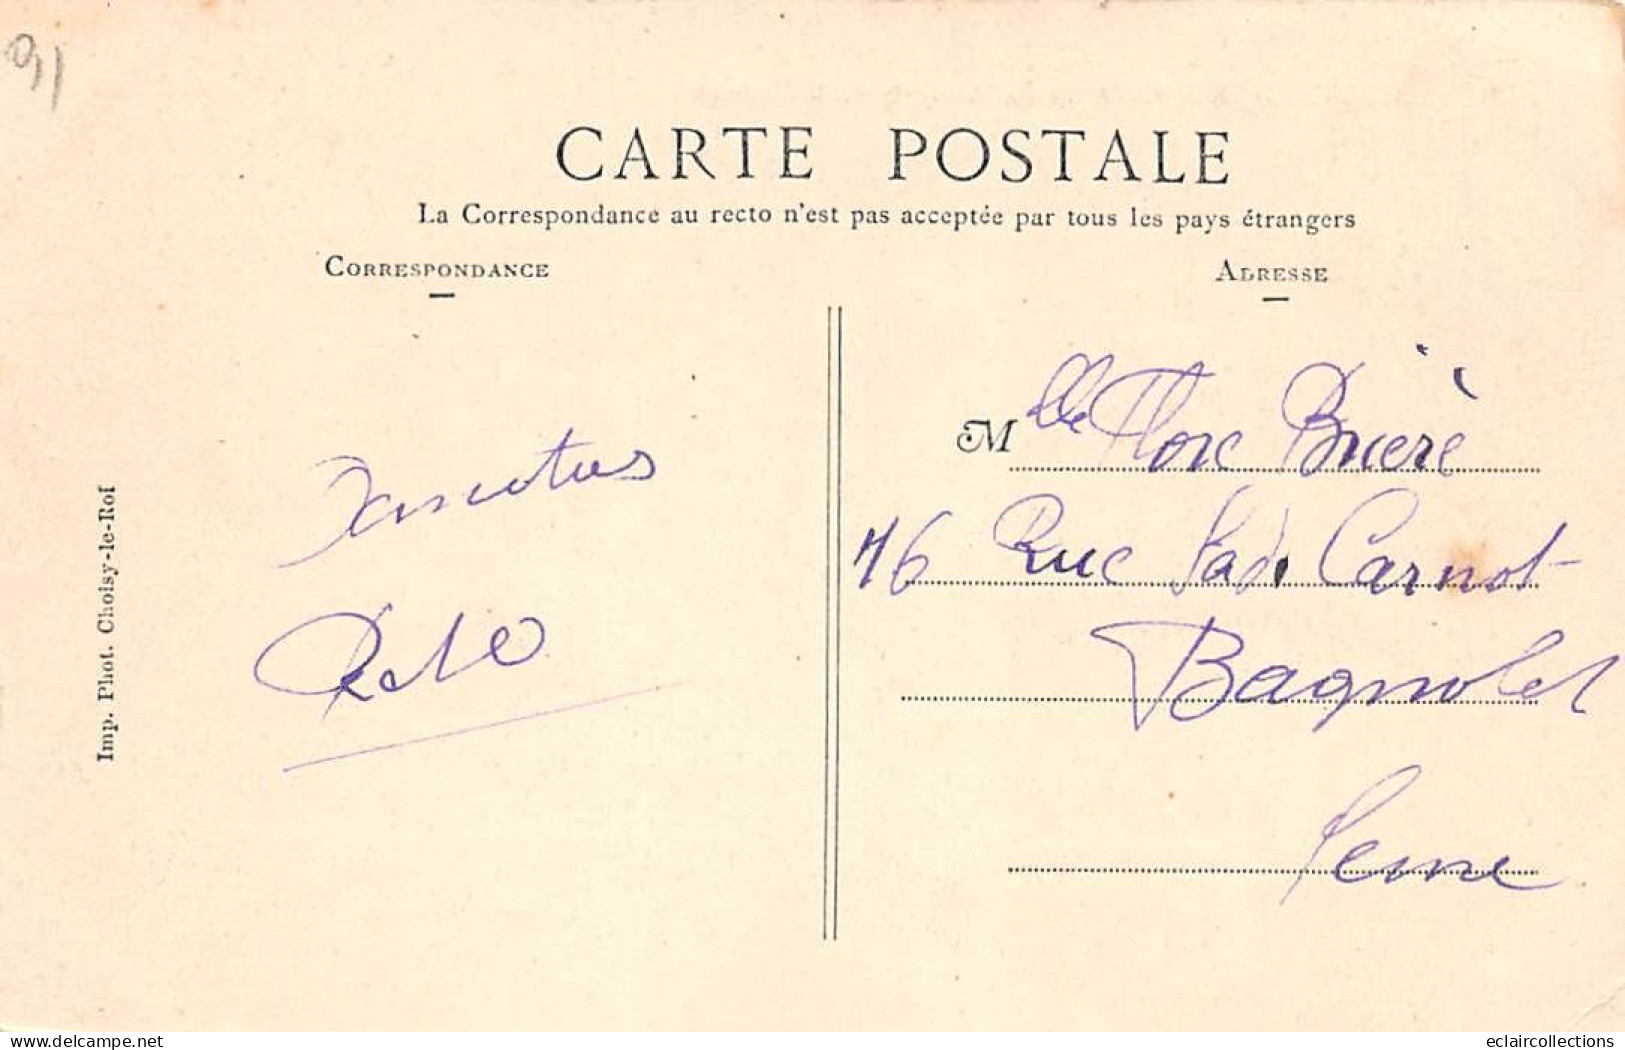 91
CARTE POSTALE
La Correspondance au recto n'est pas acceptée par tous les pays étrangers
CORRESPONDANCE
ADRESSE
Mlle Brière
76 Rue Sadi Carnot
Bagnolet
Seine
Imp. Phot. Choisy-le-Roi
www.delcampe.net
eclaircollections